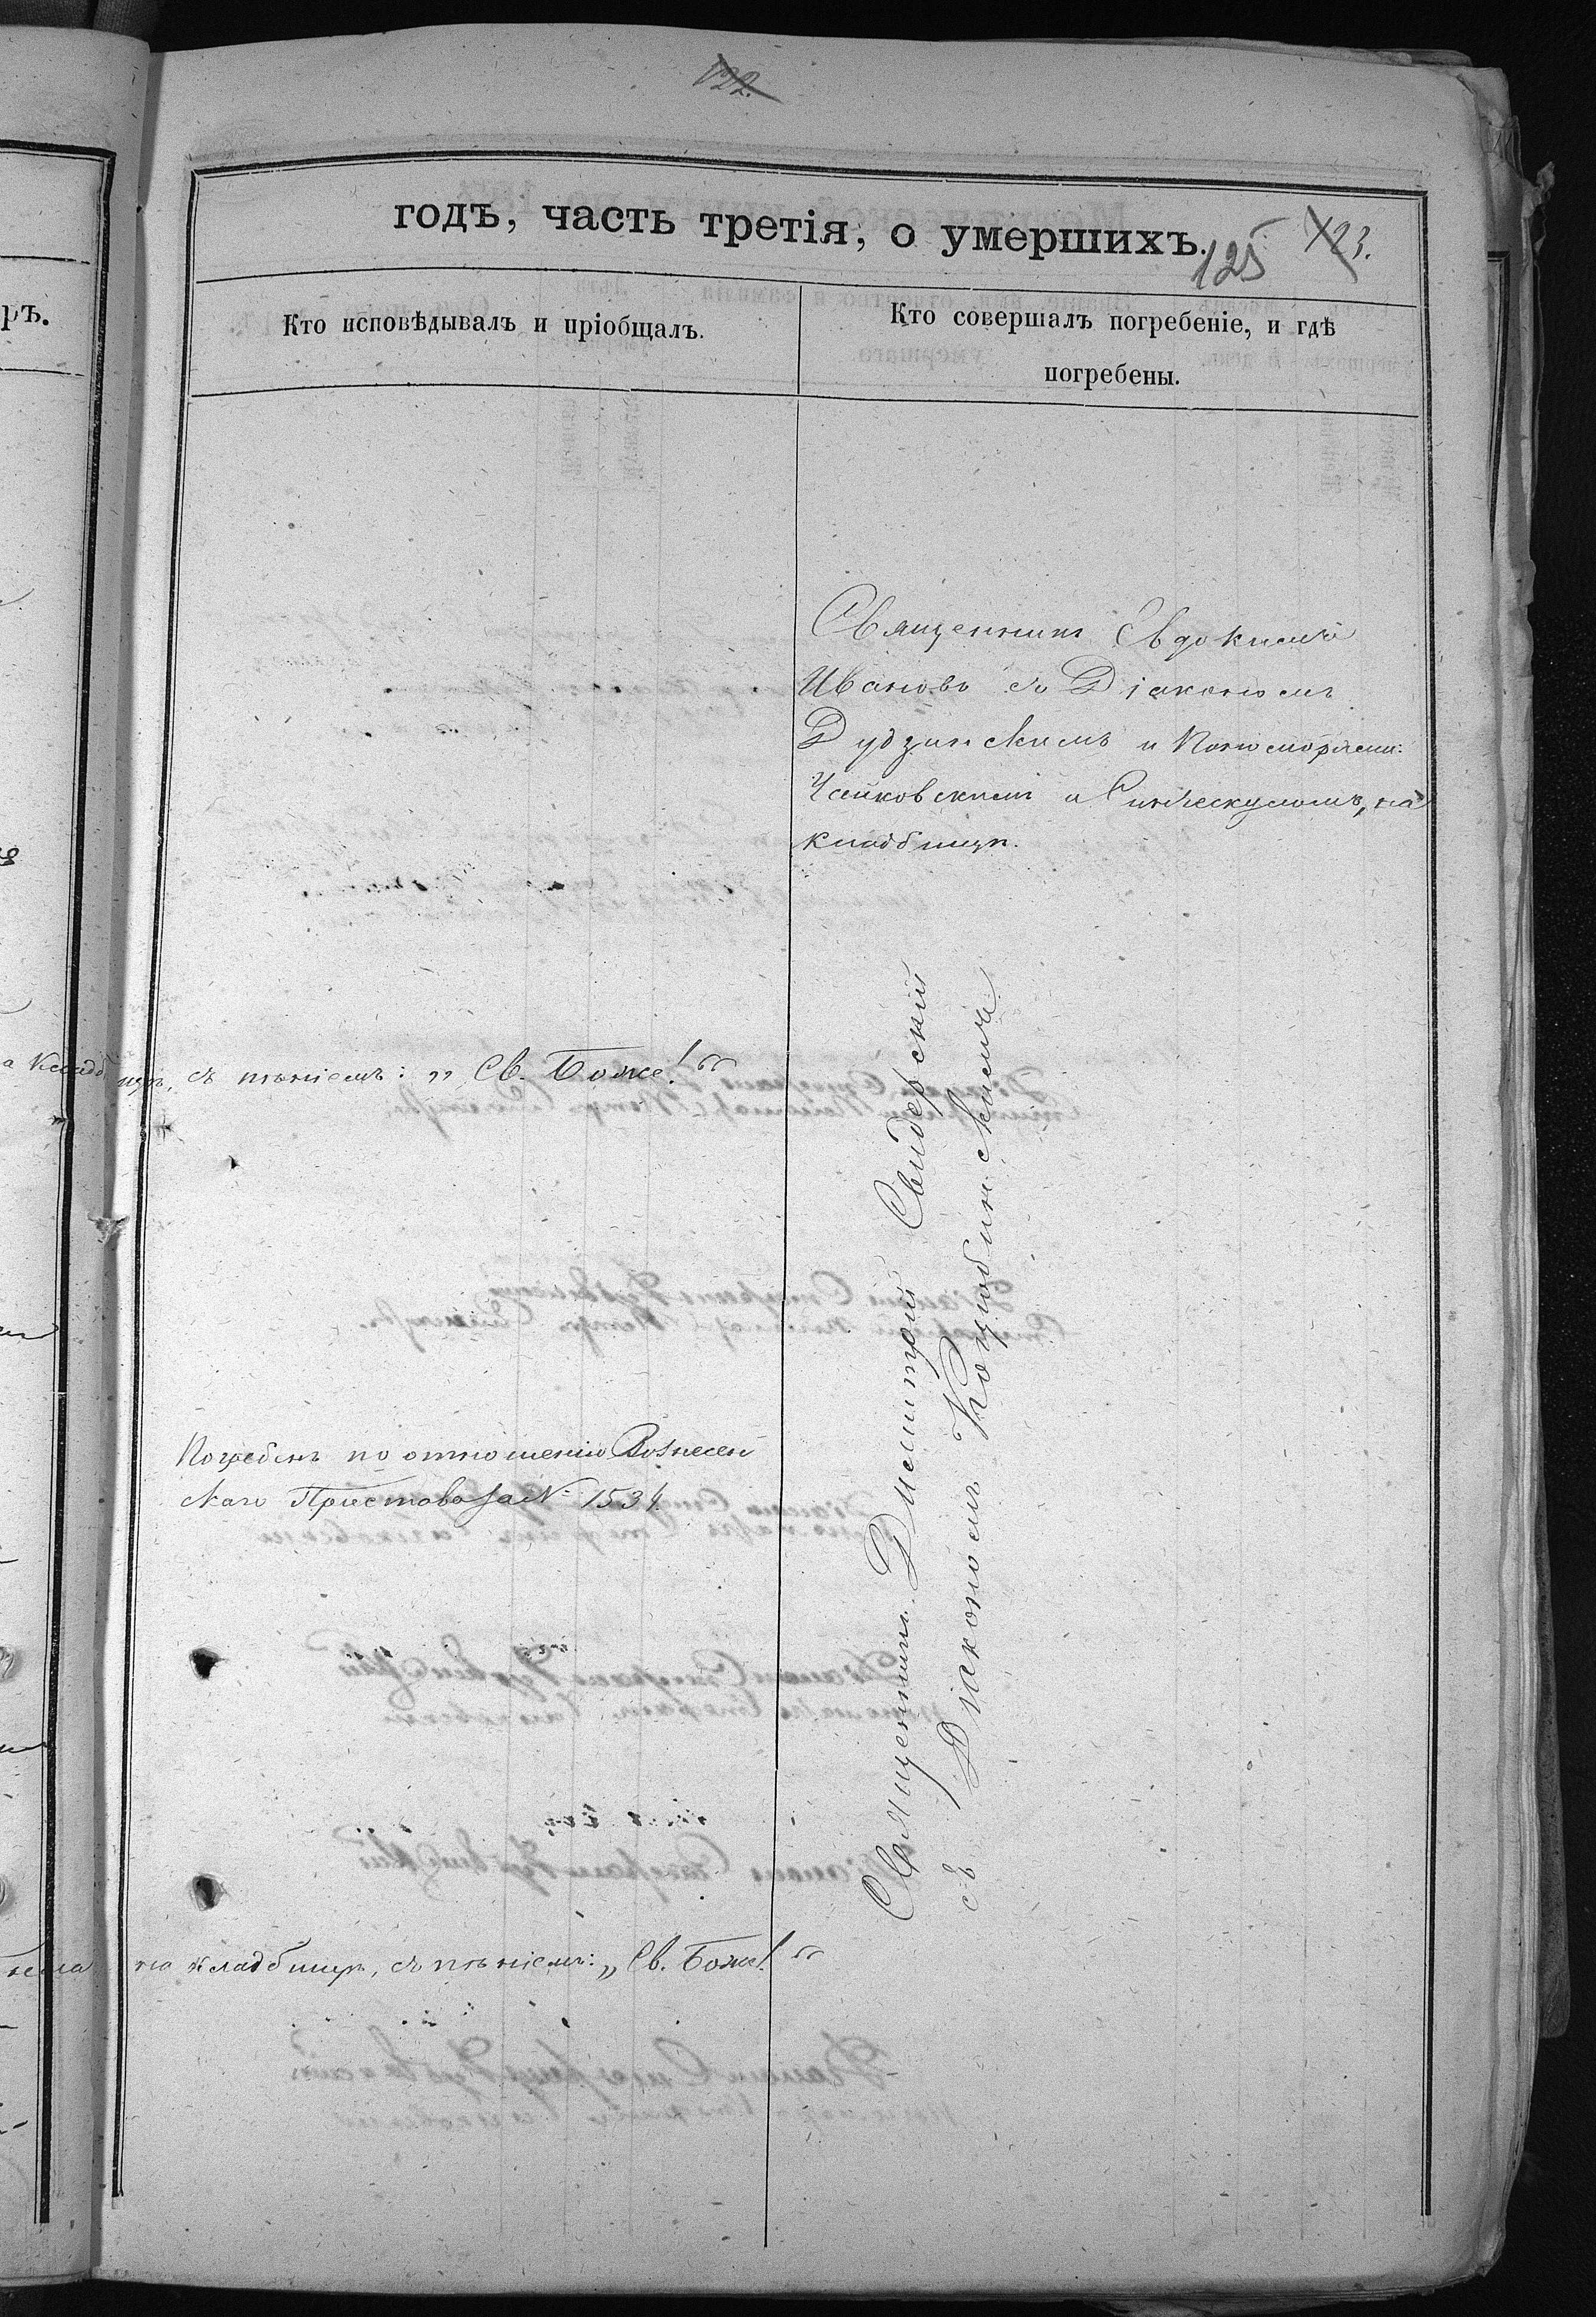 122.
годъ, часть третія, о умершихъ.
125
123.
ръ.
Кто исповѣдывалъ и пріобщалъ.
Кто совершалъ погребеніе, и гдѣ
погребены.
Священникъ Евдокимъ
Ивановъ съ Діакономъ
Дудзинскимъ и Пономарями:
Чайковскимъ и
кладбищѣ.
а кладбищѣ, съ пѣніемъ: „Св. Боже!“
Погребенъ по отношенію Вознесен
скаго Пристава за № 1534.
на кладбищѣ, съ пѣніемъ: „Св. Боже!“
Священникъ Димитрій Свидерскій
съ Діакономъ Коцюбинскимъ.